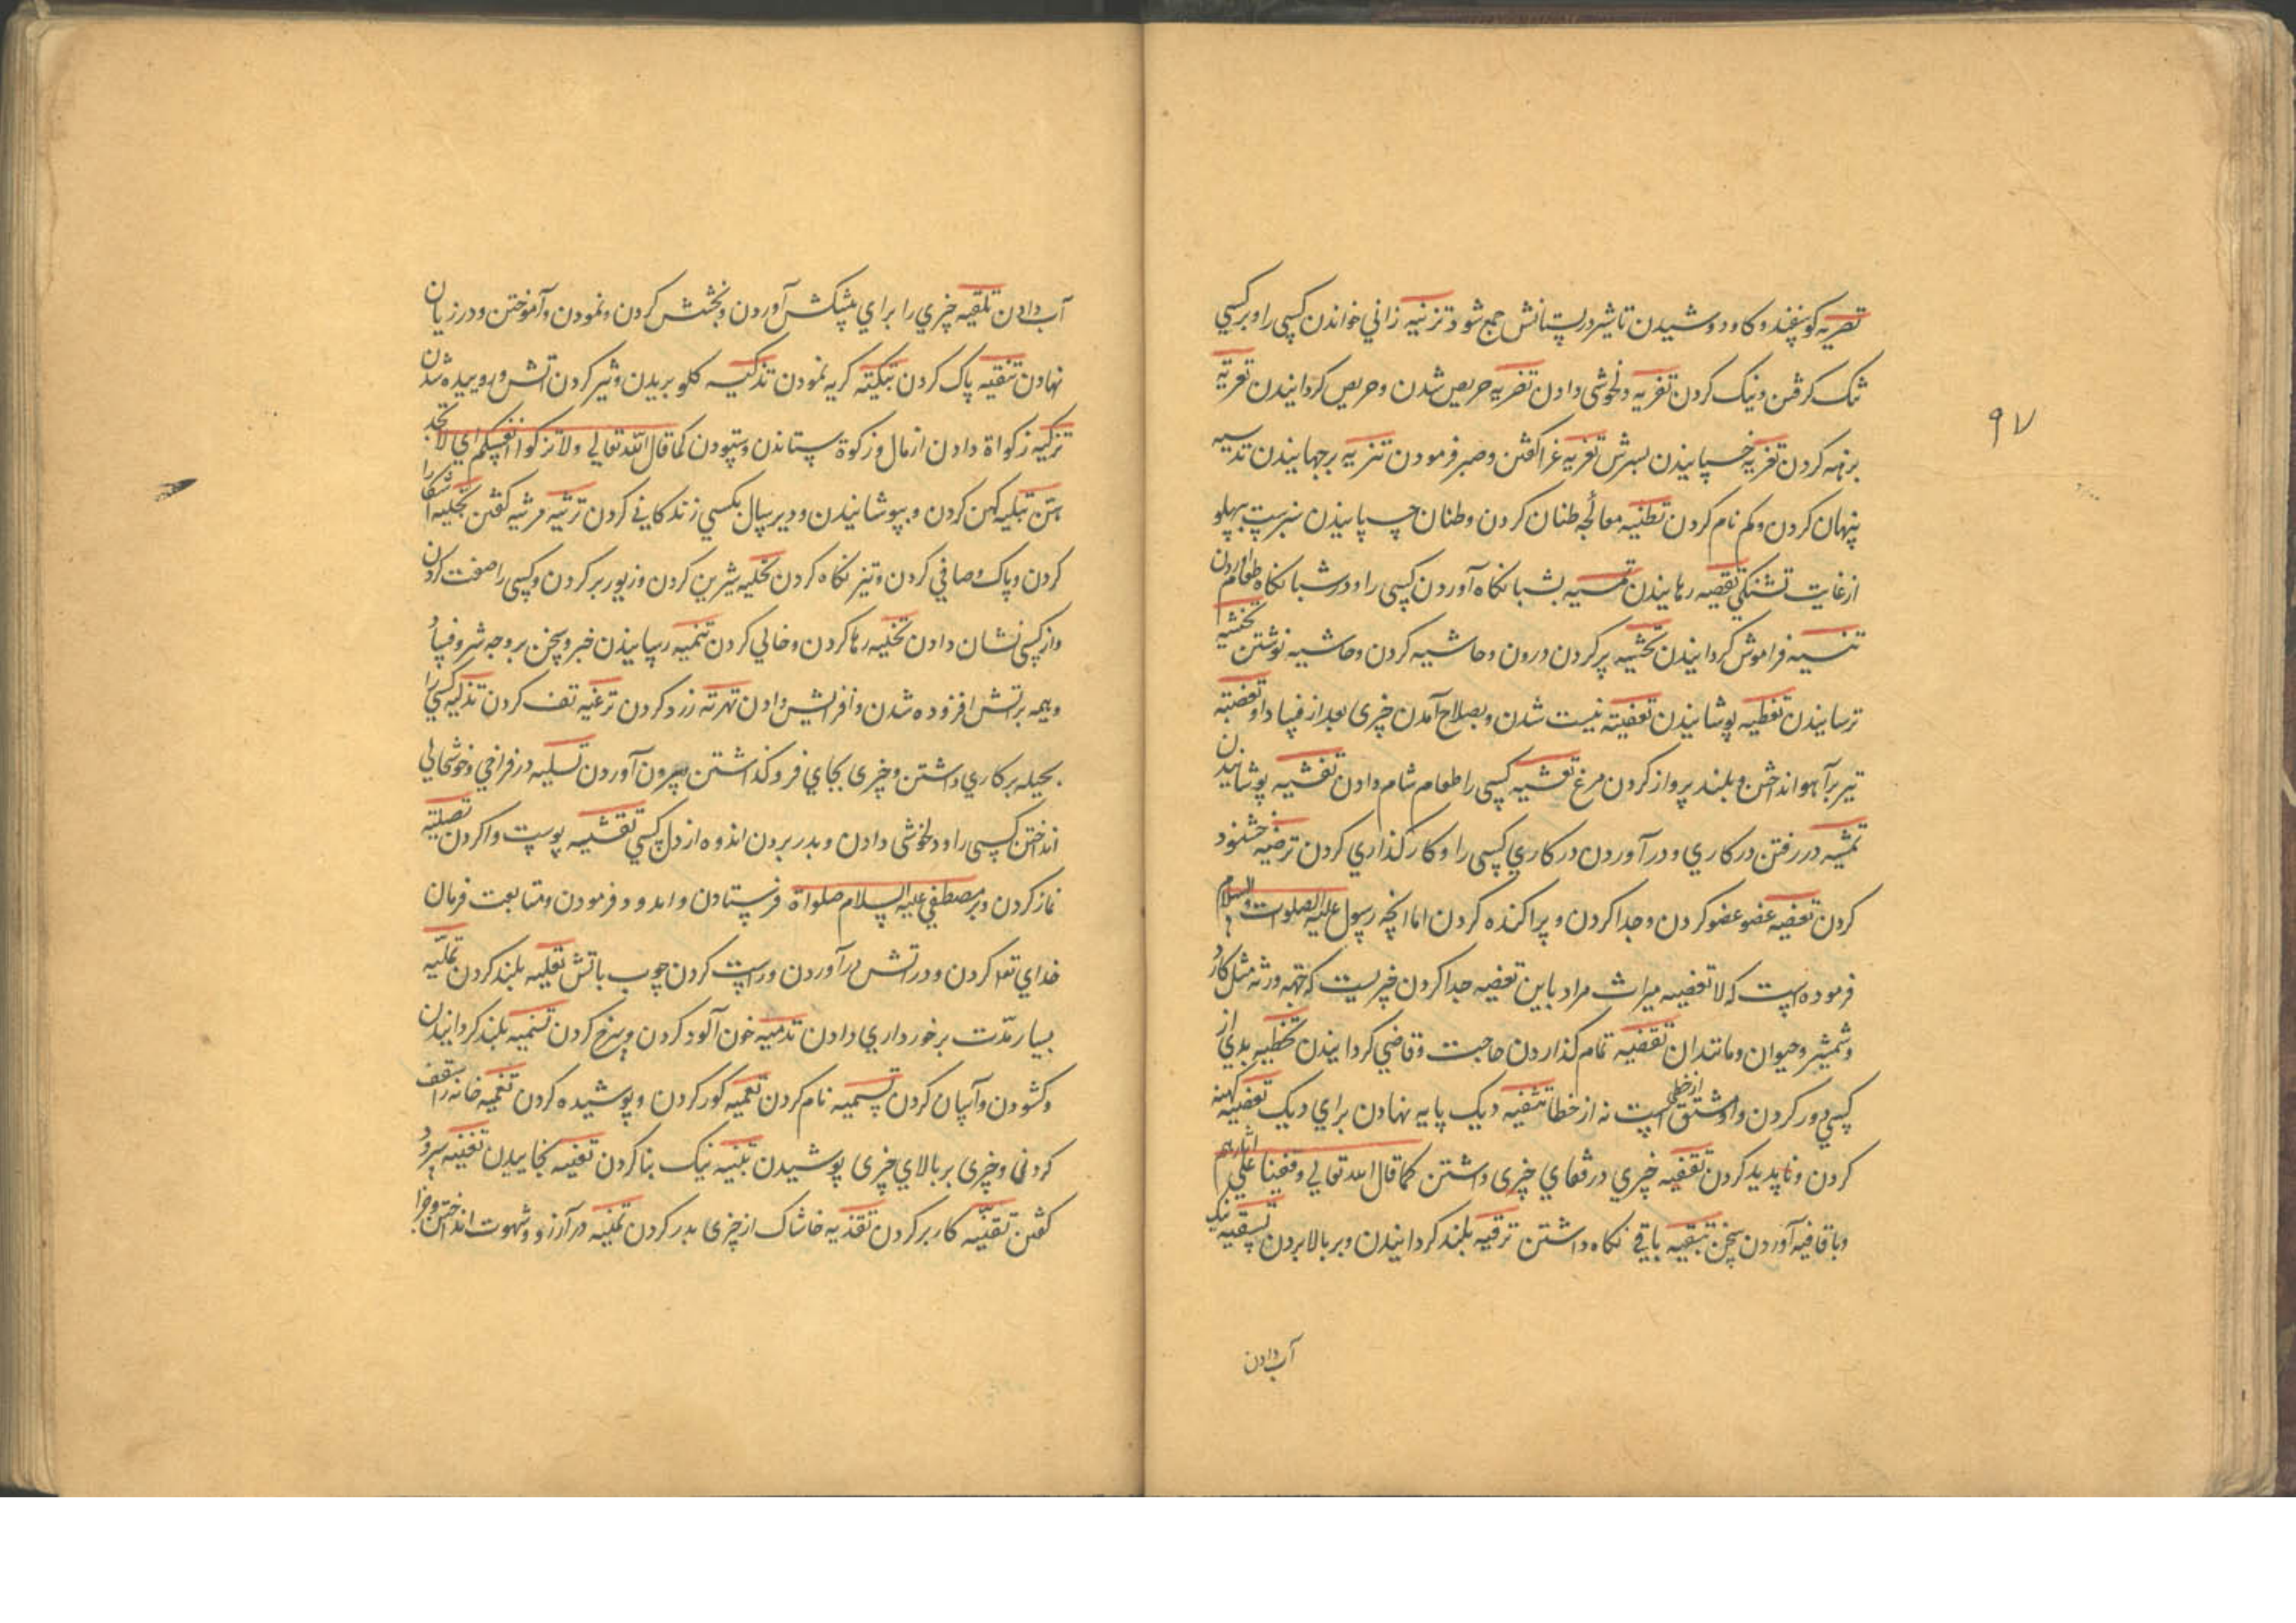 تصریه کوسفند و کاو دوشیدن تا شیر در پستانش جمع شود تزنیه زانی خواندن کسی را و بر کسی
تنک کرفتن و نیک کردن تغزیه دلخوشی دادن تضریه حریص شدن و حریص کردانیدن تعریه
برهنه کردن تغریه خسپانیدن بسرش تعزیه عزا کفتن و صبر فرمودن تنزیه برجهانیدن تدسیه
پنهان کردن و کم نام کردن تطنیه معالجه طنان کردن و طنان چسپانیدن سپرست بپهلو
از غایت تشنکی تقصیه رهانیدن تمسیه بشبانکاه آوردن کسی را و در شبانکاه طعام آوردن
تنسیه فراموش کردانیدن تحشیه پر کردن درون و حاشیه کردن و حاشیه نوشتن تخشیه
ترسانیدن تغطیه پوشانیدن تعفیته نیست شدن و بصلاح آمدن چیزی بعد از فساد او
تیر بر آهو انداختن و بلند پرواز کردن مرغ تعشیه کسی را طعام شام دادن تغشیه پوشانیدن
تمشیه در رفتن در کاری و در آوردن در کاری کسی را و کارکذاری کردن ترضیه خشنود
کردن تعضیه عضو عضو کردن و جدا کردن و پراکنده کردن اما آنچه رسول علیه الصلوات والسلام
فرموده است که لا تعضیه میراث مراد باین تعضیه جدا کردن چیزیست که ورثه مثل کارد
و شمشیر و حیوان و مانند ان تقضیه تمام کذاردن حاجت و قاضی کردانیدن تخطیه بدی از
کسی دور کردن و او مشتق از خطی است نه از خطا تثفیه دیک پایه نهادن برای دیک تعفیه کهنه
کردن و ناپدید کردن تقفیه چیزی در قفای چیزی داشتن کما قال الله تعالی وقفینا علی اثارهم
و با قافیه آوردن سخن تبقیه باقی نکاه داشتن ترقیه بلند کردانیدن و بر بالا بردن تسقیه نیک
آب دادن
۹۷
آب دادن تلقیه چیزی را برای پیشکش آوردن و بخشش کردن و نمودن و آموختن و در زیان
نهادن تنقیه پاک کردن تبکیته کریه نمودن تذکیه کلو بریدن و تیز کردن آتش و پوییده شدن
تزکیه زکواة دادن از مال و زکوة ستاندن و ستودن کما قال الله تعالی ولا تزکوا انفسکم ای لا
تبلیه کهن کردن و بپوشانیدن و دیر سال بکسی زندکانی کردن ترثیه مرثیه کفتن تجلیه آشکارا
کردن و پاک و صافی کردن و تیز نکاه کردن تحلیه شیرین کردن و زیور بر کردن و کسی را صفت کردن
و از کسی نشان دادن تخلیه رها کردن و خالی کردن تنمیه رسانیدن خبر و سخن بر وجه شر و فساد
و هیمه بر آتش افزوده شدن و افزایش دادن تهرته زرد کردن ترغیه تف کردن تدلیه کسی را
بحیله بر کاری داشتن و چیزی بجای فرو کذاشتن و بیرون آوردن تسلیه در فراخی و خوشحالی
انداختن کسی را و دلخوشی دادن و بدر بردن اندوه از دل کسی تقشیه پوست وا کردن تصلیته
نماز کردن و بر مصطفی علیه السلام صلواة فرستادن و فرمودن و متابعت فرمان
خدای تعا کردن و در آتش درآوردن و راست کردن چوب باتش تعلیه بلند کردن تملیه
بسیار مدت برخورداری دادن تدمیه خون آلود کردن و سرخ کردن تسنمیه بلند کردانیدن
و کشودن و آسان کردن تسمیه نام کردن تعمیه کور کردن و پوشیده کردن تغمیه خانه را سقف
کردنی و چیزی بر بالای چیزی پوشیدن تبنیه نیک بنا کردن تعنیه تغنیه سرود
کفتن تقنیه کار بر کردن تقذیه خاشاک از چیزی بدر کردن تمنیه در آرزو و شهوت انداختن